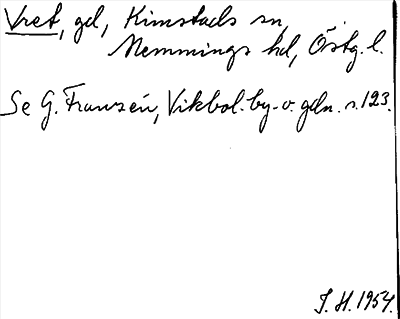 Vret, gd, Kimstads sn,
Memmings hd, Östg. l.
Se G. Franzén, Vikbol. by- o. gdn. s. 123.
I. H. 1954.